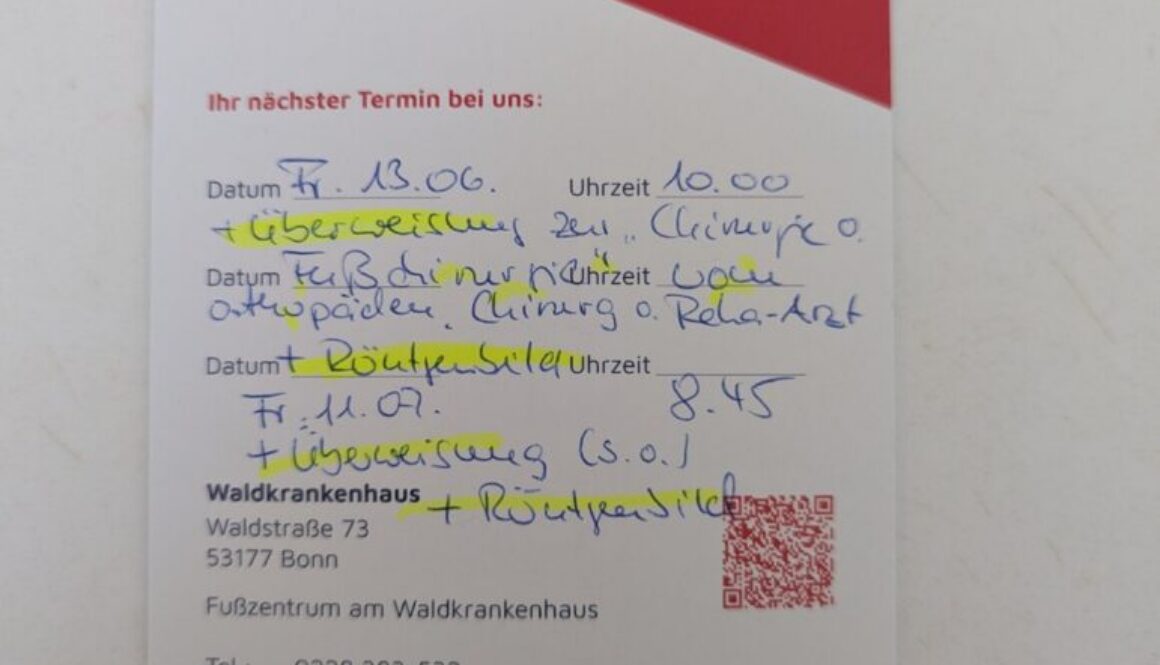 Ihr nächster Termin bei uns:
Datum Fr. 13.06. Uhrzeit 10.00
+ Überweisung zur „Chirurgie o.
Datum Fußchirurgie" Uhrzeit vom
Orthopäden, Chirurg o. Reha-Arzt
Datum + Röntgenbild Uhrzeit
Fr. 11.07. 8.45
+ Überweisung (s.o.)
Waldkrankenhaus + Röntgenbild
Waldstraße 73
53177 Bonn
Fußzentrum am Waldkrankenhaus